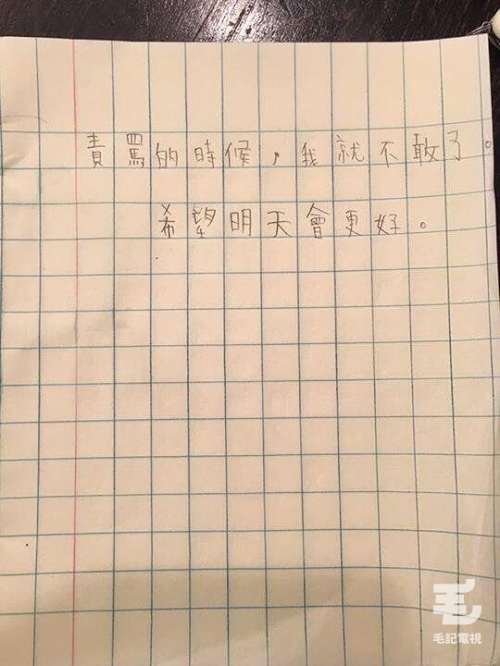 責罵的時候，我就不敢了。
希望明天會更好。
毛記電視